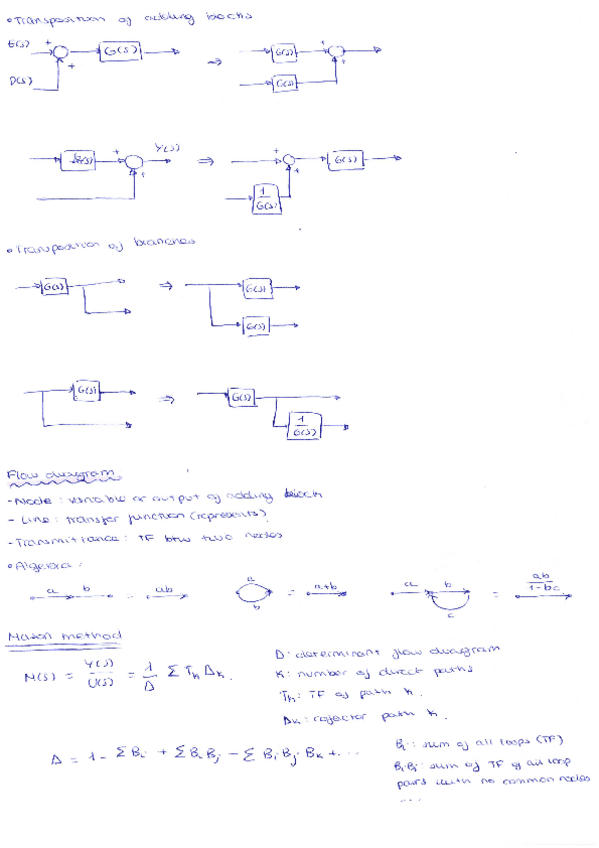 • Transposition of adding blocks
E(s) + G(s) ⇒ G(s) +
D(s) + G(s) +
G(s) + Y(s) ⇒ + G(s)
+ 1/G(s) +
• Transposition of branches
G(s) ⇒ G(s)
G(s)
G(s) ⇒ G(s)
1/G(s)
Flow diagram
- Node: variable or output of adding block
- Line: transfer function (represents).
- Transmittance: TF btw two nodes
• Algebra:
a b = ab a b = a+b a b c = ab/1-bc
Mason method
M(s) = Y(s)/U(s) = 1/Δ Σ Tk Δk.
Δ: determinant flow diagram
K: number of direct paths
Tk: TF of path k.
Δk: path k.
Δ = 1 - ΣBi + ΣBiBj - ΣBiBj·Bk + ...
Bi: sum of all loops (TF)
BiBj: sum of TF of all loop
pairs with no common nodes
....